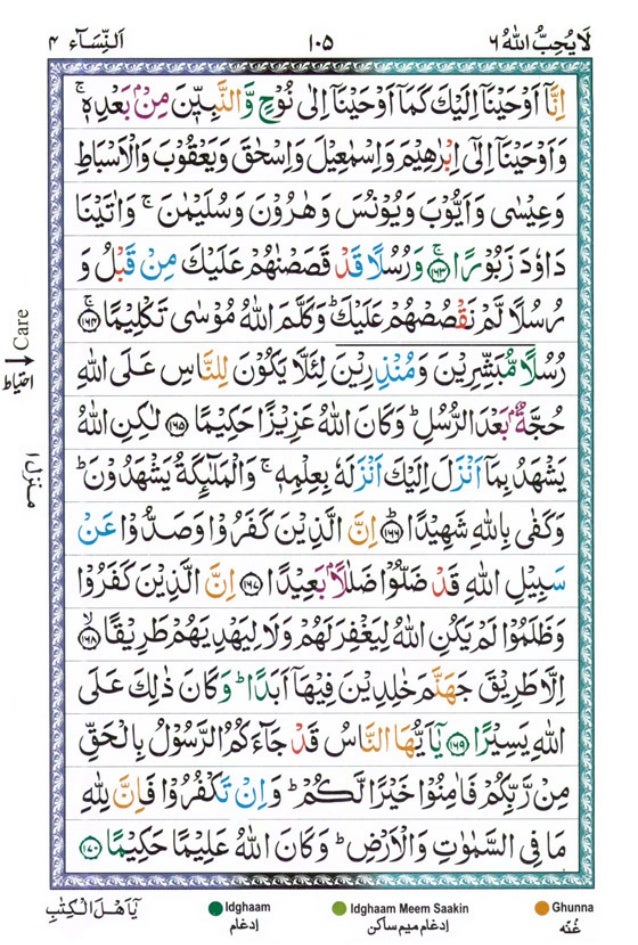 اَلنِّسَآء ۴ ۱۰۵ لَا يُحِبُّ اللّٰهُ ۶
اِنَّاۤ اَوْحَيْنَاۤ اِلَيْكَ كَمَاۤ اَوْحَيْنَاۤ اِلٰى نُوْحٍ وَّالنَّبِيّٖنَ مِنْۢ بَعْدِهٖ ۚ
وَاَوْحَيْنَاۤ اِلٰٓى اِبْرٰهِيْمَ وَاِسْمٰعِيْلَ وَاِسْحٰقَ وَيَعْقُوْبَ وَالْاَسْبَاطِ
وَعِيْسٰى وَاَيُّوْبَ وَيُوْنُسَ وَهٰرُوْنَ وَسُلَيْمٰنَ ۚ وَاٰتَيْنَا
دَاوٗدَ زَبُوْرًا ۚ ﴿۱۶۳﴾ وَرُسُلًا قَدْ قَصَصْنٰهُمْ عَلَيْكَ مِنْ قَبْلُ وَ
رُسُلًا لَّمْ نَقْصُصْهُمْ عَلَيْكَ ؕ وَكَلَّمَ اللّٰهُ مُوْسٰى تَكْلِيْمًا ۚ ﴿۱۶۴﴾
رُسُلًا مُّبَشِّرِيْنَ وَمُنْذِرِيْنَ لِئَلَّا يَكُوْنَ لِلنَّاسِ عَلَى اللّٰهِ
حُجَّةٌۢ بَعْدَ الرُّسُلِ ؕ وَكَانَ اللّٰهُ عَزِيْزًا حَكِيْمًا ﴿۱۶۵﴾ لٰكِنِ اللّٰهُ
يَشْهَدُ بِمَاۤ اَنْزَلَ اِلَيْكَ اَنْزَلَهٗ بِعِلْمِهٖ ۚ وَالْمَلٰٓئِكَةُ يَشْهَدُوْنَ ؕ
وَكَفٰى بِاللّٰهِ شَهِيْدًا ؕ ﴿۱۶۶﴾ اِنَّ الَّذِيْنَ كَفَرُوْا وَصَدُّوْا عَنْ
سَبِيْلِ اللّٰهِ قَدْ ضَلُّوْا ضَلٰلًاۢ بَعِيْدًا ﴿۱۶۷﴾ اِنَّ الَّذِيْنَ كَفَرُوْا
وَظَلَمُوْا لَمْ يَكُنِ اللّٰهُ لِيَغْفِرَ لَهُمْ وَلَا لِيَهْدِيَهُمْ طَرِيْقًا ۙ ﴿۱۶۸﴾
اِلَّا طَرِيْقَ جَهَنَّمَ خٰلِدِيْنَ فِيْهَاۤ اَبَدًا ؕ وَكَانَ ذٰلِكَ عَلَى
اللّٰهِ يَسِيْرًا ﴿۱۶۹﴾ يٰۤاَيُّهَا النَّاسُ قَدْ جَآءَكُمُ الرَّسُوْلُ بِالْحَقِّ
مِنْ رَّبِّكُمْ فَاٰمِنُوْا خَيْرًا لَّكُمْ ؕ وَاِنْ تَكْفُرُوْا فَاِنَّ لِلّٰهِ
مَا فِى السَّمٰوٰتِ وَالْاَرْضِ ؕ وَكَانَ اللّٰهُ عَلِيْمًا حَكِيْمًا ﴿۱۷۰﴾
Care
احتیاط
منزل ۱
يٰۤاَهْلَ الْكِتٰبِ
Idghaam
إدغام
Idghaam Meem Saakin
إدغام ميم ساكن
Ghunna
غُنّه